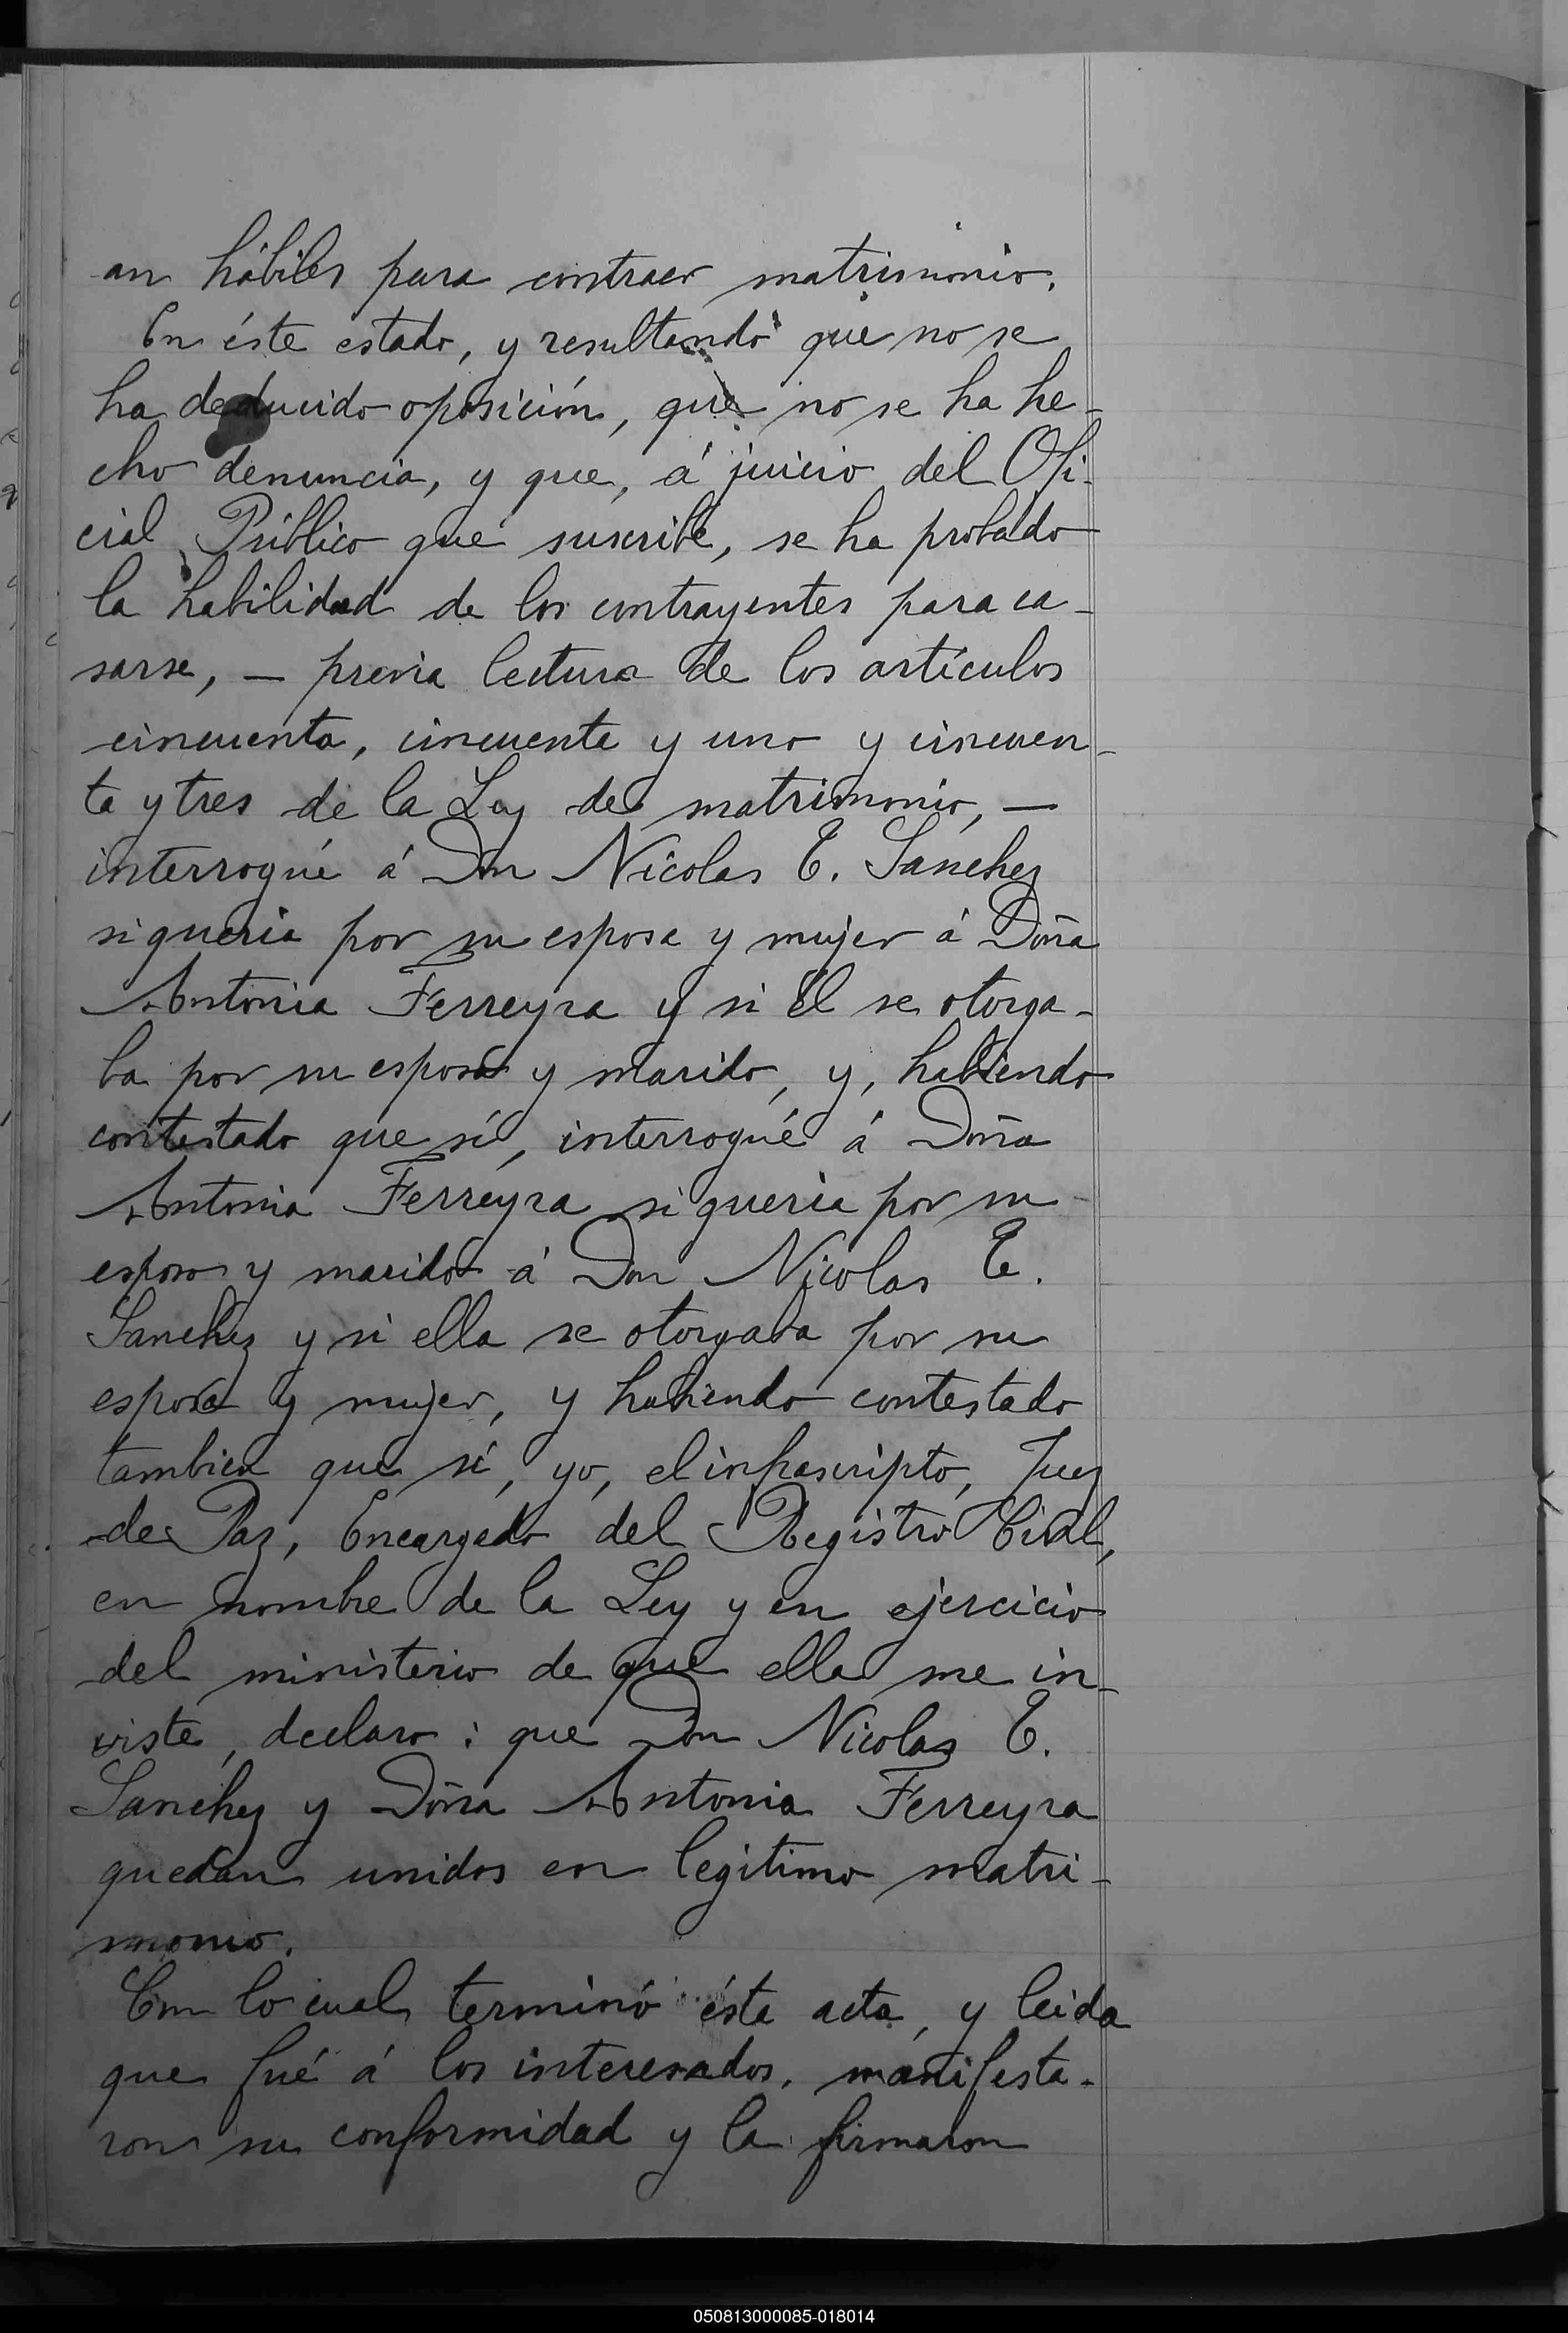 an hábiles para contraer matrimonio.
En éste estado, y resultando que no se
ha deducido oposición, que no se ha he-
cho denuncia, y que, á juicio del Ofi-
cial Público que suscribe, se ha probado
la habilidad de los contrayentes para ca-
sarse, — previa lectura de los artículos
cincuenta, cincuenta y uno y cincuen-
ta y tres de la Ley de matrimonio, —
interrogué á Don Nicolas E. Sanchez
si queria por su esposa y mujer á Doña
Antonia Ferreyra y si él se otorga-
ba por su esposo y marido, y, habiendo
contestado que sí, interrogué á Doña
Antonia Ferreyra si queria por su
esposo y marido á Don Nicolas E.
Sanchez y si ella se otorgaba por su
esposa y mujer, y habiendo contestado
tambien que sí, yo, el infrascripto, Juez
de Paz, Encargado del Registro Civil,
en nombre de la Ley y en ejercicio
del ministerio de que ella me in-
viste, declaro: que Don Nicolas E.
Sanchez y Doña Antonia Ferreyra
quedan unidos en legitimo matri-
monio.
Con lo cual terminó ésta acta, y leida
que fué á los interesados, manifesta-
ron su conformidad y la firmaron
050813000085-018014